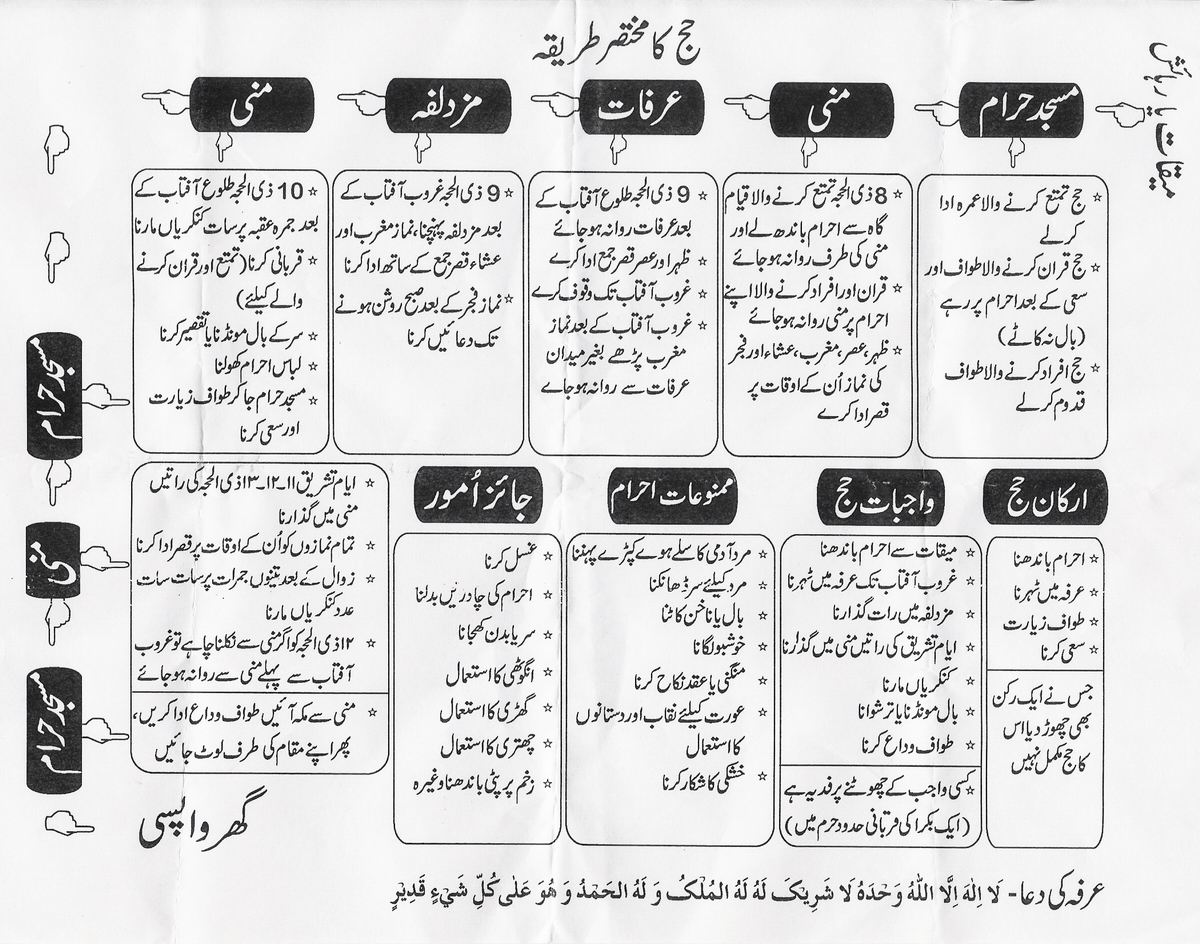 حج کا مختصر طریقہ
میقات یا رہائش
مسجد حرام
☆ حج تمتع کرنے والا عمرہ ادا
کرلے
☆ حج قران کرنے والا طواف اور
سعی کے بعد احرام پر رہے
(بال نہ کاٹے)
☆ حج افراد کرنے والا طواف
قدوم کرلے
منی
☆ 8 ذی الحجہ تمتع کرنے والا قیام
گاہ سے احرام باندھ لے اور
منی کی طرف روانہ ہوجائے
☆ قران اور افراد کرنے والا اپنے
احرام پر منی روانہ ہوجائے
☆ ظہر، عصر، مغرب، عشاء اور فجر
کی نماز اُن کے اوقات پر
قصر ادا کرے
عرفات
☆ 9 ذی الحجہ طلوع آفتاب کے
بعد عرفات روانہ ہوجائے
☆ ظہر اور عصر قصر جمع ادا کرے
☆ غروب آفتاب تک وقوف کرے
☆ غروب آفتاب کے بعد نماز
مغرب پڑھے بغیر میدان
عرفات سے روانہ ہوجاے
مزدلفہ
☆ 9 ذی الحجہ غروب آفتاب کے
بعد مزدلفہ پہنچنا، نماز مغرب اور
عشاء قصر جمع کے ساتھ ادا کرنا
☆ نماز فجر کے بعد صبح روشن ہونے
تک دعائیں کرنا
منی
☆ 10 ذی الحجہ طلوع آفتاب کے
بعد جمرہ عقبہ پر سات کنکریاں مارنا
☆ قربانی کرنا (تمتع اور قران کرنے
والے کیلئے)
☆ سر کے بال مونڈنا یا تقصیر کرنا
☆ لباس احرام کھولنا
☆ مسجد حرام جا کر طواف زیارت
اور سعی کرنا
مسجد حرام
منی
☆ ایام تشریق ۱۱۔۱۲۔۱۳ ذی الحجہ کی راتیں
منی میں گذارنا
☆ تمام نمازوں کو اُن کے اوقات پر قصر ادا کرنا
☆ زوال کے بعد تینوں جمرات پر سات سات
عدد کنکریاں مارنا
☆ ۱۲ ذی الحجہ کو اگر منی سے نکلنا چاہے تو غروب
آفتاب سے پہلے منی سے روانہ ہوجائے
مسجد حرام
☆ منی سے مکہ آئیں طواف وداع ادا کریں،
پھر اپنے مقام کی طرف لوٹ جائیں
گھر واپسی
ارکان حج
☆ احرام باندھنا
☆ عرفہ میں ٹہرنا
☆ طواف زیارت
☆ سعی کرنا
جس نے ایک رکن
بھی چھوڑ دیا اس
کا حج مکمل نہیں
واجبات حج
☆ میقات سے احرام باندھنا
☆ غروب آفتاب تک عرفہ میں ٹہرنا
☆ مزدلفہ میں رات گذارنا
☆ ایام تشریق کی راتیں منی میں گذارنا
☆ کنکریاں مارنا
☆ بال مونڈنا یا ترشوانا
☆ طواف وداع کرنا
☆ کسی واجب کے چھوٹنے پر فدیہ ہے
(ایک بکرا کی قربانی حدود حرم میں)
ممنوعات احرام
☆ مرد آدمی کا سلے ہوے کپڑے پہننا
☆ مرد کیلئے سر ڈھانکنا
☆ بال یا ناخن کاٹنا
☆ خوشبو لگانا
☆ منگنی یا عقد نکاح کرنا
☆ عورت کیلئے نقاب اور دستانوں
کا استعمال
☆ خشکی کا شکار کرنا
جائز اُمور
☆ غسل کرنا
☆ احرام کی چادریں بدلنا
☆ سر یا بدن کھجانا
☆ انگوٹھی کا استعمال
☆ گھڑی کا استعمال
☆ چھتری کا استعمال
☆ زخم پر پٹی باندھنا وغیرہ
عرفہ کی دعا - لَا اِلٰهَ اِلَّا اللّٰهُ وَحْدَهُ لَا شَرِيْكَ لَهُ لَهُ الْمُلْكُ وَ لَهُ الْحَمْدُ وَ هُوَ عَلٰى كُلِّ شَيْءٍ قَدِيْرٍ